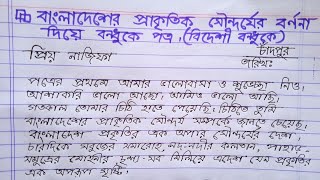 বাংলাদেশের প্রাকৃতিক সৌন্দর্যের বর্ণনা
দিয়ে বন্ধুকে পত্র। (বিদেশী বন্ধুকে)
চাঁদপুর
প্রিয় নাজিফা
তারিখঃ
পত্রের প্রথমে আমার ভালোবাসা ও শুভেচ্ছা নিও।
আশাকরি ভালো আছো, আমিও ভালো আছি।
গতকাল তোমার চিঠি হাতে পেয়েছি। চিঠিতে তুমি
বাংলাদেশের প্রাকৃতিক সৌন্দর্য সম্পর্কে জানতে চেয়েছ।
বাংলাদেশ প্রকৃতির এক অপার সৌন্দর্যের দেশ।
চারদিকে সবুজের সমারোহ, নদ-নদীর কলতান, পাহাড়-
সমুদ্রের মোহনীয় দৃশ্য- সব মিলিয়ে এদেশ যেন প্রকৃতির
এক অপরূপ সৃষ্টি।